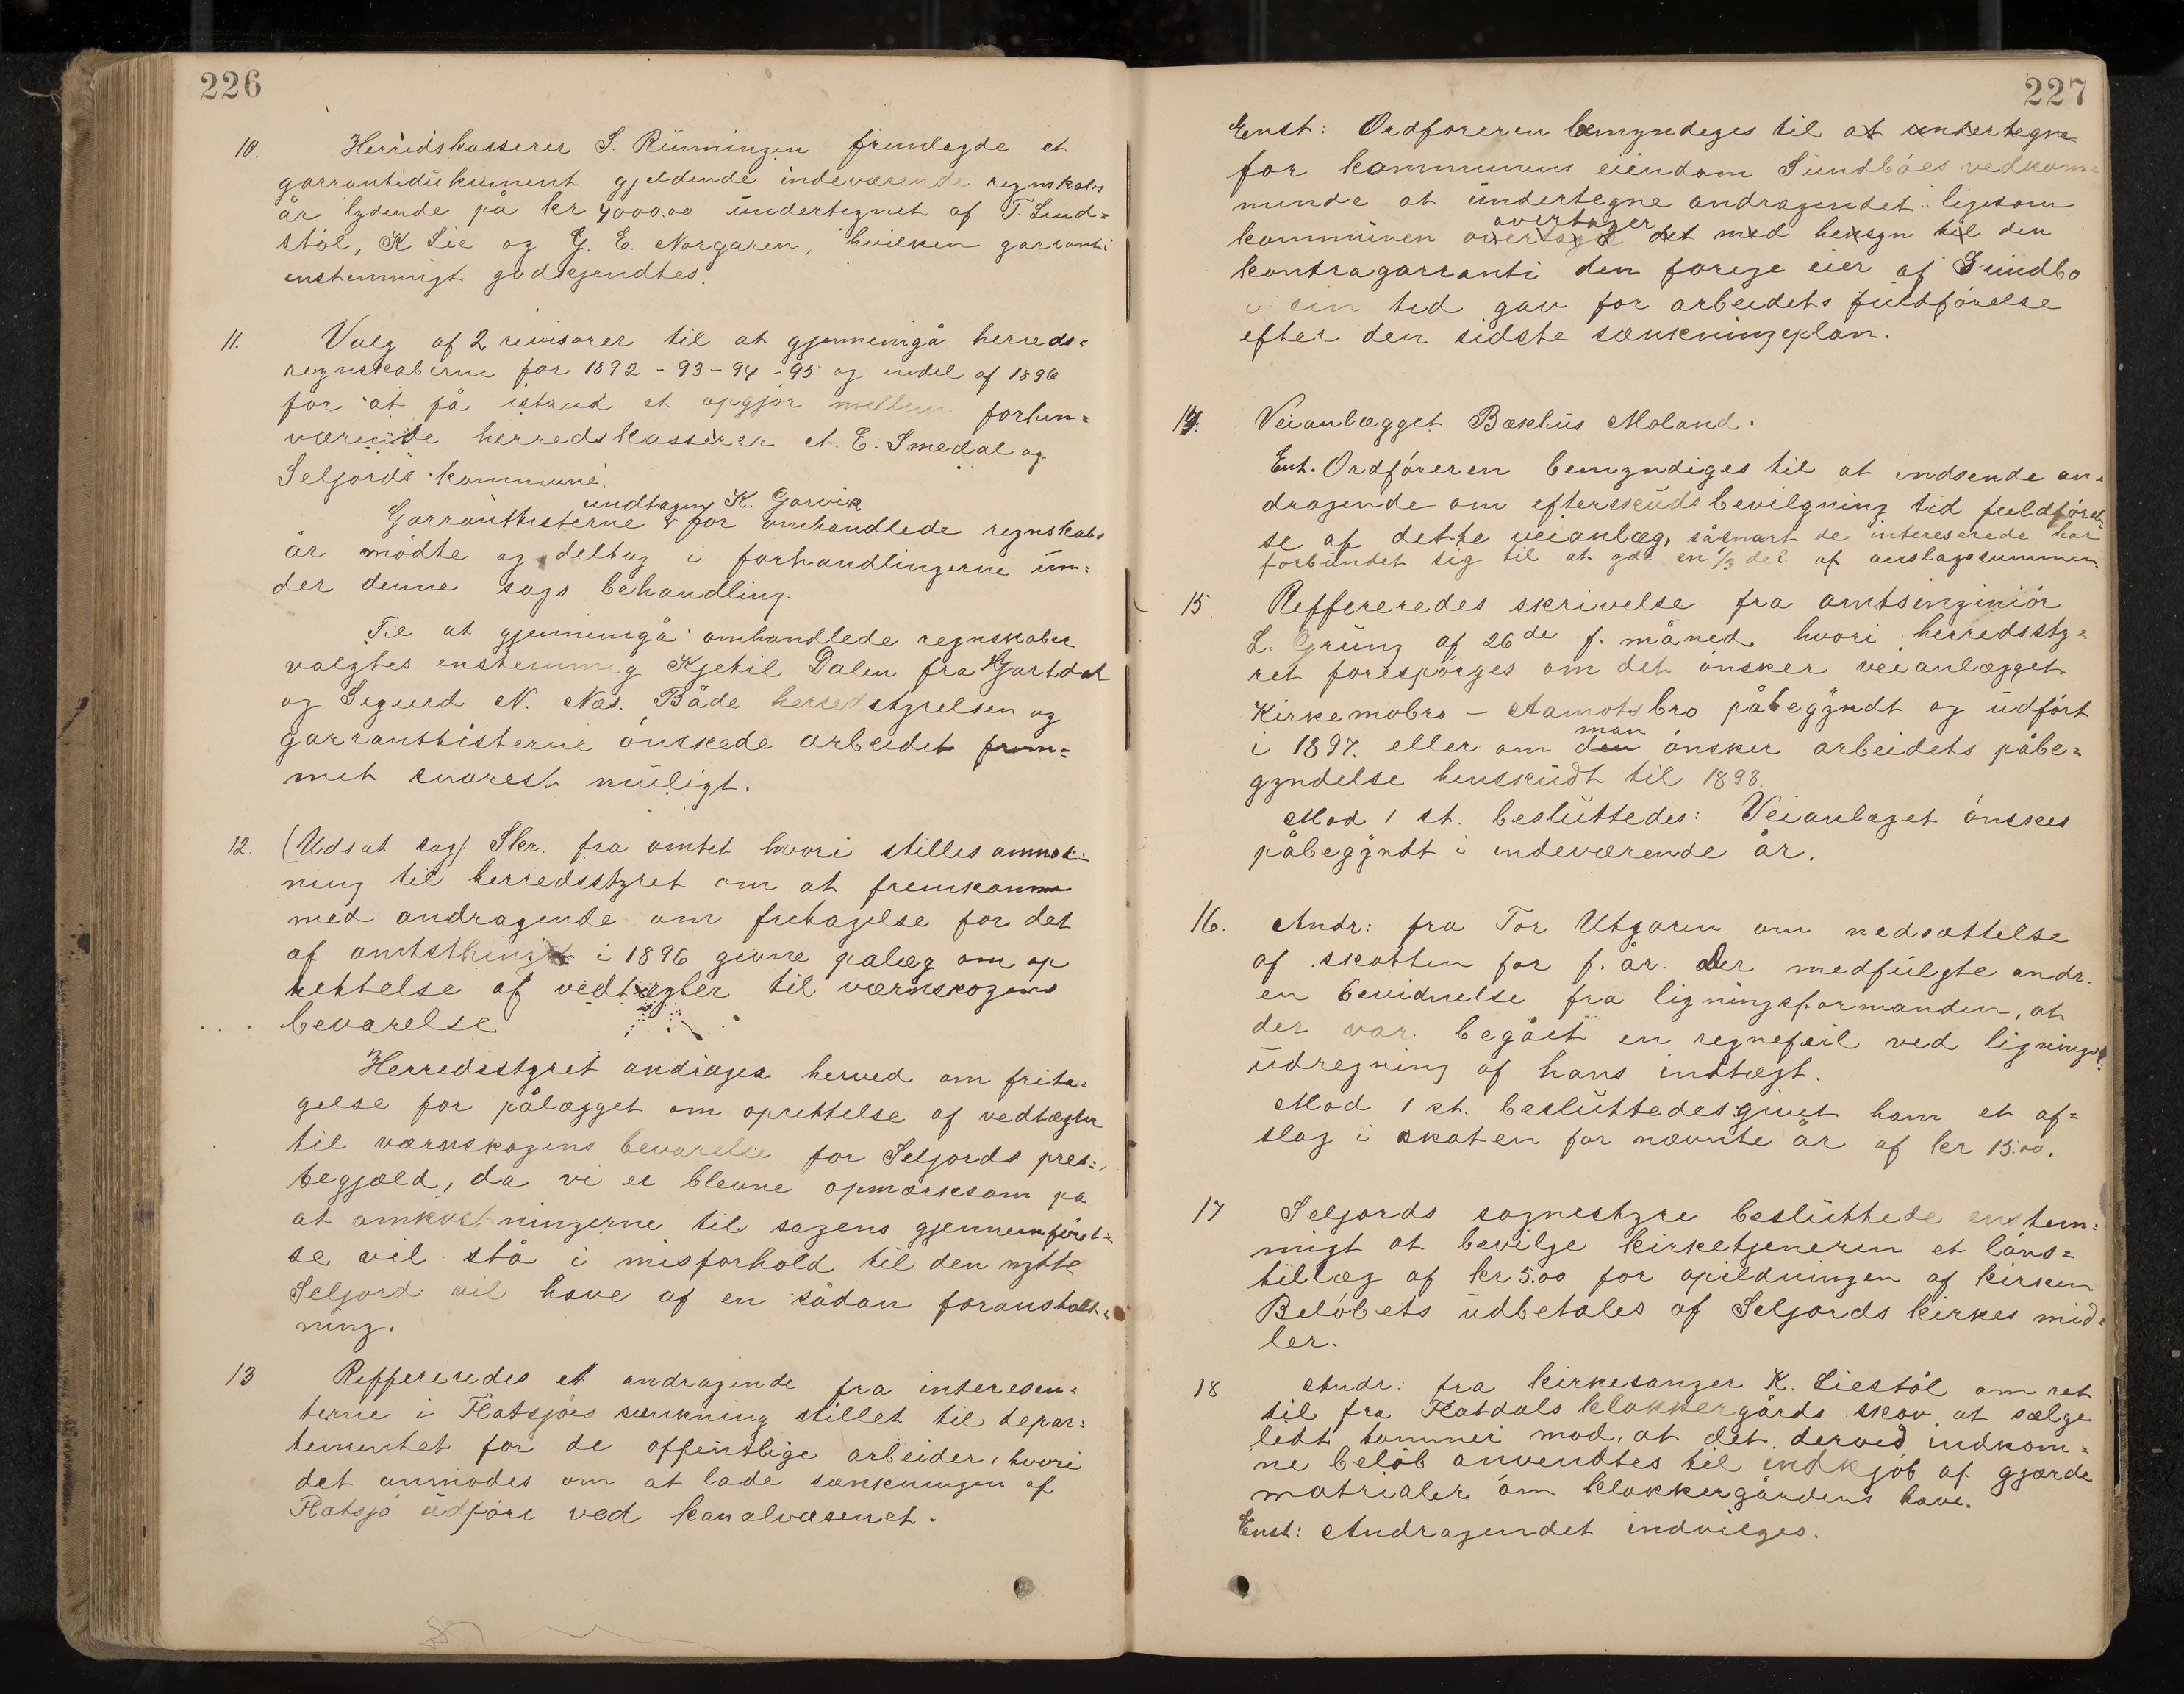 226
10. Herredskasserer S. Rünningen fremlagde et
garrantidükument gjeldende indeværende regnskabs
år lydende på kr 4000.00 ündertegnet af T. Lind=
stöl, K Lie og G. E. Norgaren, hvilken garranti
enstemmigt godkjendtes.
11. Valg af 2 revisorer til at gjennemgå herreds=
regnskaberne for 1892 - 93 - 94 - 95 og endel af 1896
for at få istand et opgjør mellem forhen=
værende herredskasserer A. E. Smedal og
Seljords kommune.
undtagen K. Garvik
Garranttisterne for omhandlede regnskabs
år mödte og deltog i forhandlingerne ün=
der denne sags behandling.
Til at gjennemgå omhandlede regnskaber
valgtes enstemmig Kjetil Dalen fra Hjartdal
og Sigurd N. Næs. Både herredstyrelsen og
garranttisterne ønskede arbeidet frem=
met snarest müligt.
12. (Udsat sag) Skr. fra amtet hvori stilles anmod=
ning til herredsstyret om at fremkomme
med andragende om fritagelse for det
af amtsthinget i 1896 givne pålæg om op
rettelse af vedtægter til værnskogens
bevarelse
Herredsstyret andrages herved om frita=
gelse for pålægget om oprettelse af vedtægter
til værnskogens bevarelse for Seljords pres=
tegjæld, da vi er blevne opmærksom på
at omkostningerne til sagens gjennemførel=
se vil stå i misforhold til den nytte
Seljord vil have af en sådan foranstalt=
ning.
13 Reffereredes et andragende fra interesen=
terne i Flatsjøes sænkning stillet til depar=
tementet for de offentlige arbeider, hvori
det anmodes om at lade sænkningen af
Flatsjø üdføre ved kanalvæsenet.
227
Enst: Ordføreren bemyndiges til at undertegne
for kommunens eiendom Sundbøes vedkom=
mende at ündertegne andragendet ligesom
overtager
kommünen overtage det med hensyn til den
kontragarranti den forige eier af Sundbø
i sin tid gav for arbeidets füldførelse
efter den sidste sænkningsplan.
14. Veianlægget Bækhüs Moland.
Ent. Ordføreren bemyndiges til at indsende an=
dragende om efterskudsbevilgning tid fuldførel=
se af dette veianlæg, såsnart de intereserede har
forbundet sig til at yde en 1/3 del af anslagssummen.
15. Reffereredes skrivelse fra amtsinginiør
L. Grüng af 26de f. måned hvori herredssty=
ret forespørges om det ønsker veianlægget
Kirkemobro - Aamotsbro påbegyndt og üdført
man
i 1897. eller om den ønsker arbeidets påbe=
gyndelse henskudt til 1898.
Mod 1 st. beslüttedes: Veianlæget ønskes
påbegyndt i indeværende år.
16. Andr: fra Tor Utgaren om nedsættelse
af skatten for f. år. Der medfulgte andr.
en bevidnelse fra ligningsformanden, at
der var begået en regnefeil ved lignings
üdregning af hans indtægt.
Mod 1 st. beslüttedes givet ham et af=
slag i skaten for nævnte år af kr 15.00.
17 Seljords sognestyre beslüttede enstem=
migt at bevilge kirketjeneren et løns=
tillæg af kr 5.00 for opildningen af kirken
Beløbets üdbetales af Seljords kirkes mid=
ler.
18 Andr: fra kirkesanger K. Liestöl om ret
til fra Flatdals klokkergårds skov at sælge
lidt tømmer mod, at det derved indkom=
ne beløb anvendtes til indkjøb af gjærde
matrialer om klokkergårdens have.
Enst: Andragendet indvilges.